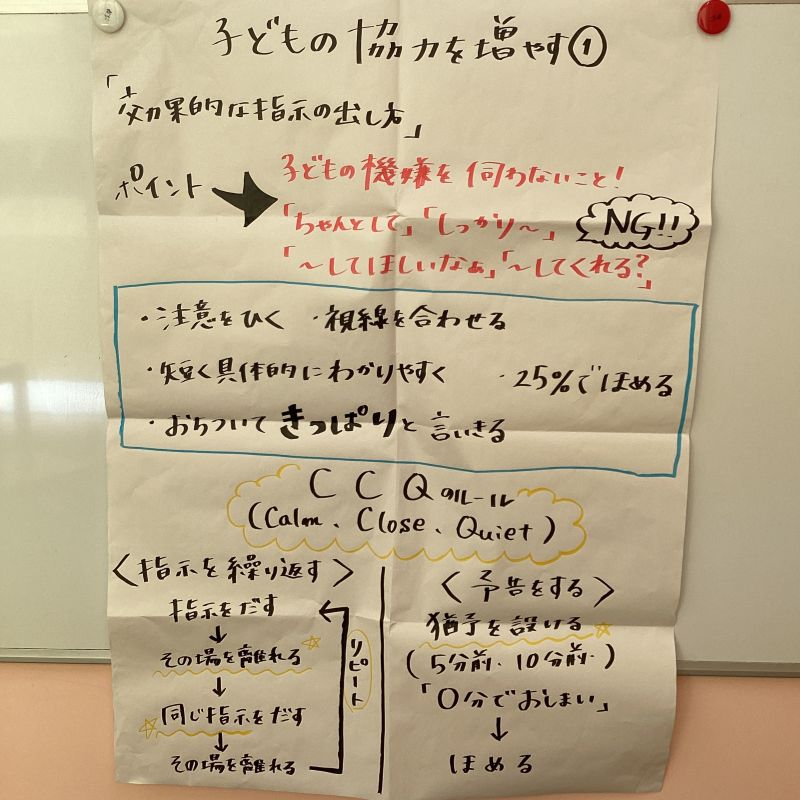 子どもの協力を増やす①
「効果的な指示の出し方」
ポイント
子どもの機嫌を伺わないこと!
「ちゃんとして」「しっかり〜」
NG!!
「〜してほしいなぁ」「〜してくれる?」
・注意をひく ・視線を合わせる
・短く具体的にわかりやすく ・25%でほめる
・おちついてきっぱりと言いきる
CCQのルール
(Calm、Close、Quiet)
〈指示を繰り返す〉
指示をだす
↓
その場を離れる
↓
同じ指示をだす
↓
その場を離れる
リピート
〈予告をする〉
猶予を設ける
(5分前・10分前・)
「0分でおしまい」
↓
ほめる